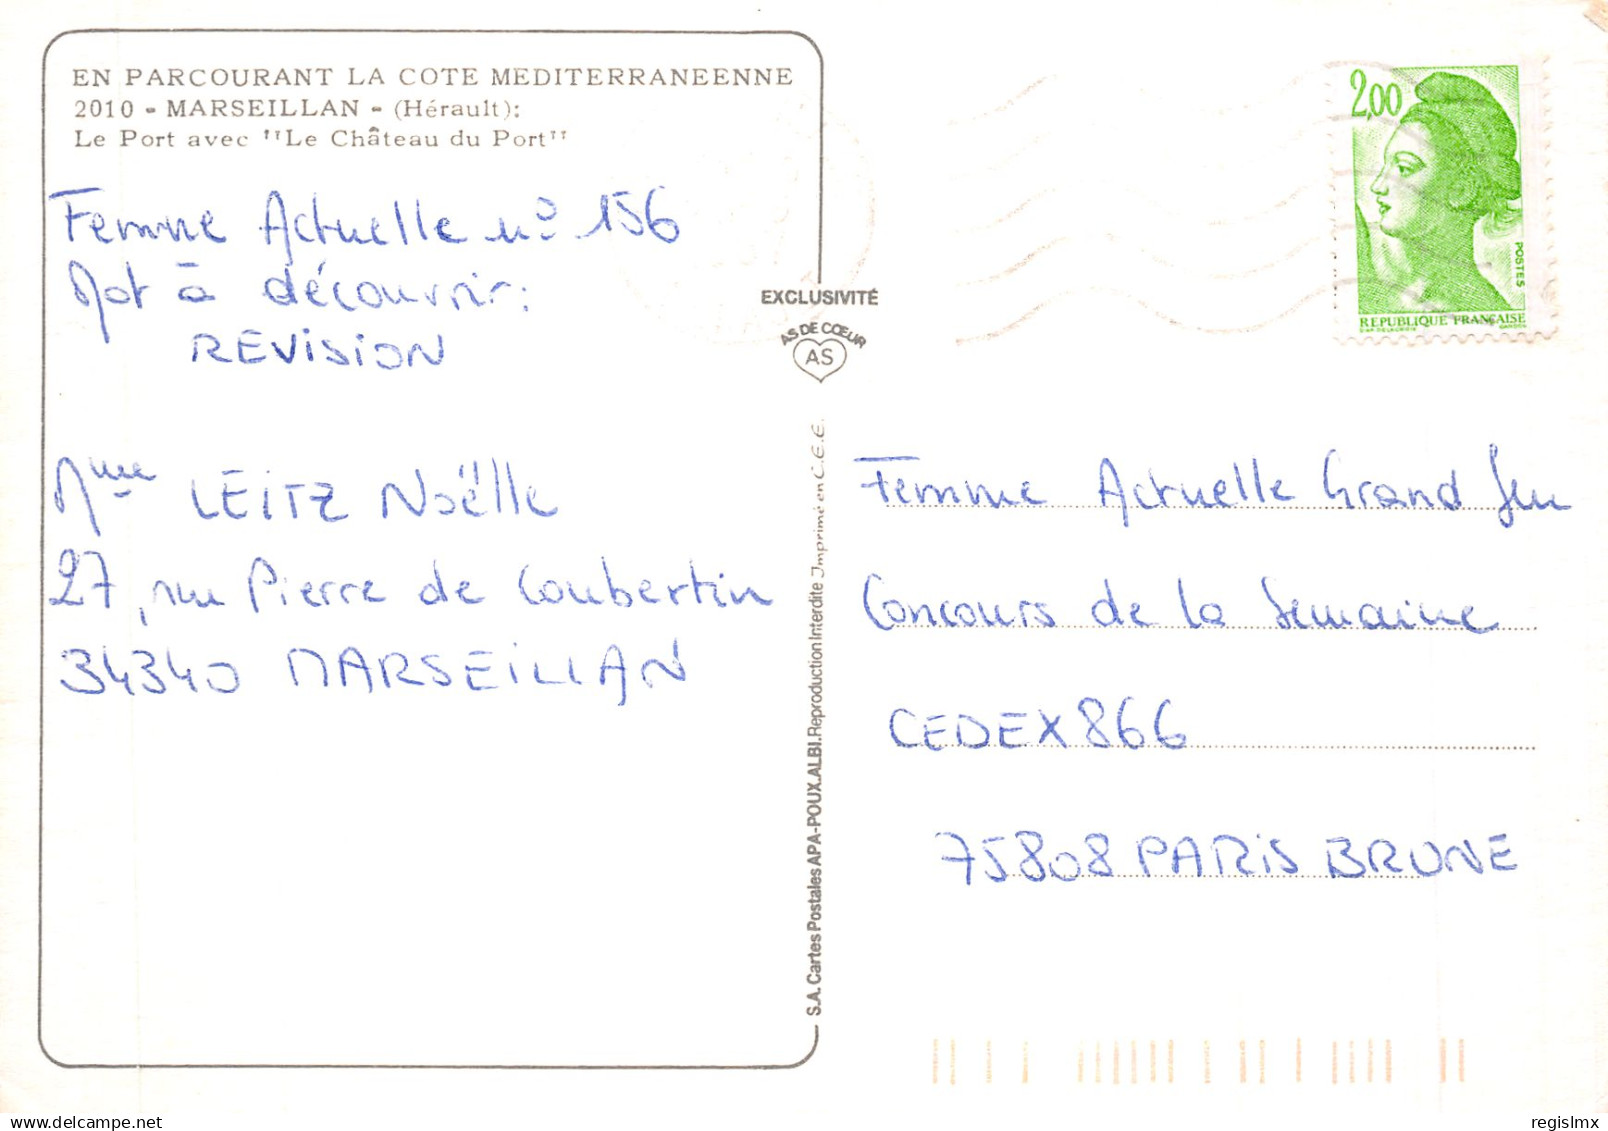 EN PARCOURANT LA COTE MEDITERRANEENNE
2010 - MARSEILLAN - (Hérault):
Le Port avec "Le Château du Port"
Femme Actuelle n° 156
Mot à découvrir:
REVISION
Mme LEITZ Noëlle
27, rue Pierre de Coubertin
34340 MARSEILLAN
EXCLUSIVITÉ
AS DE CŒUR
AS
S.A. Cartes Postales APA-POUX.ALBI. Reproduction Interdite Imprimé en C.E.E.
2,00
POSTES
REPUBLIQUE FRANÇAISE
Femme Actuelle Grand Jeu
Concours de la Semaine
CEDEX 866
75808 PARIS BRUNE
delcampe.net
regislmx